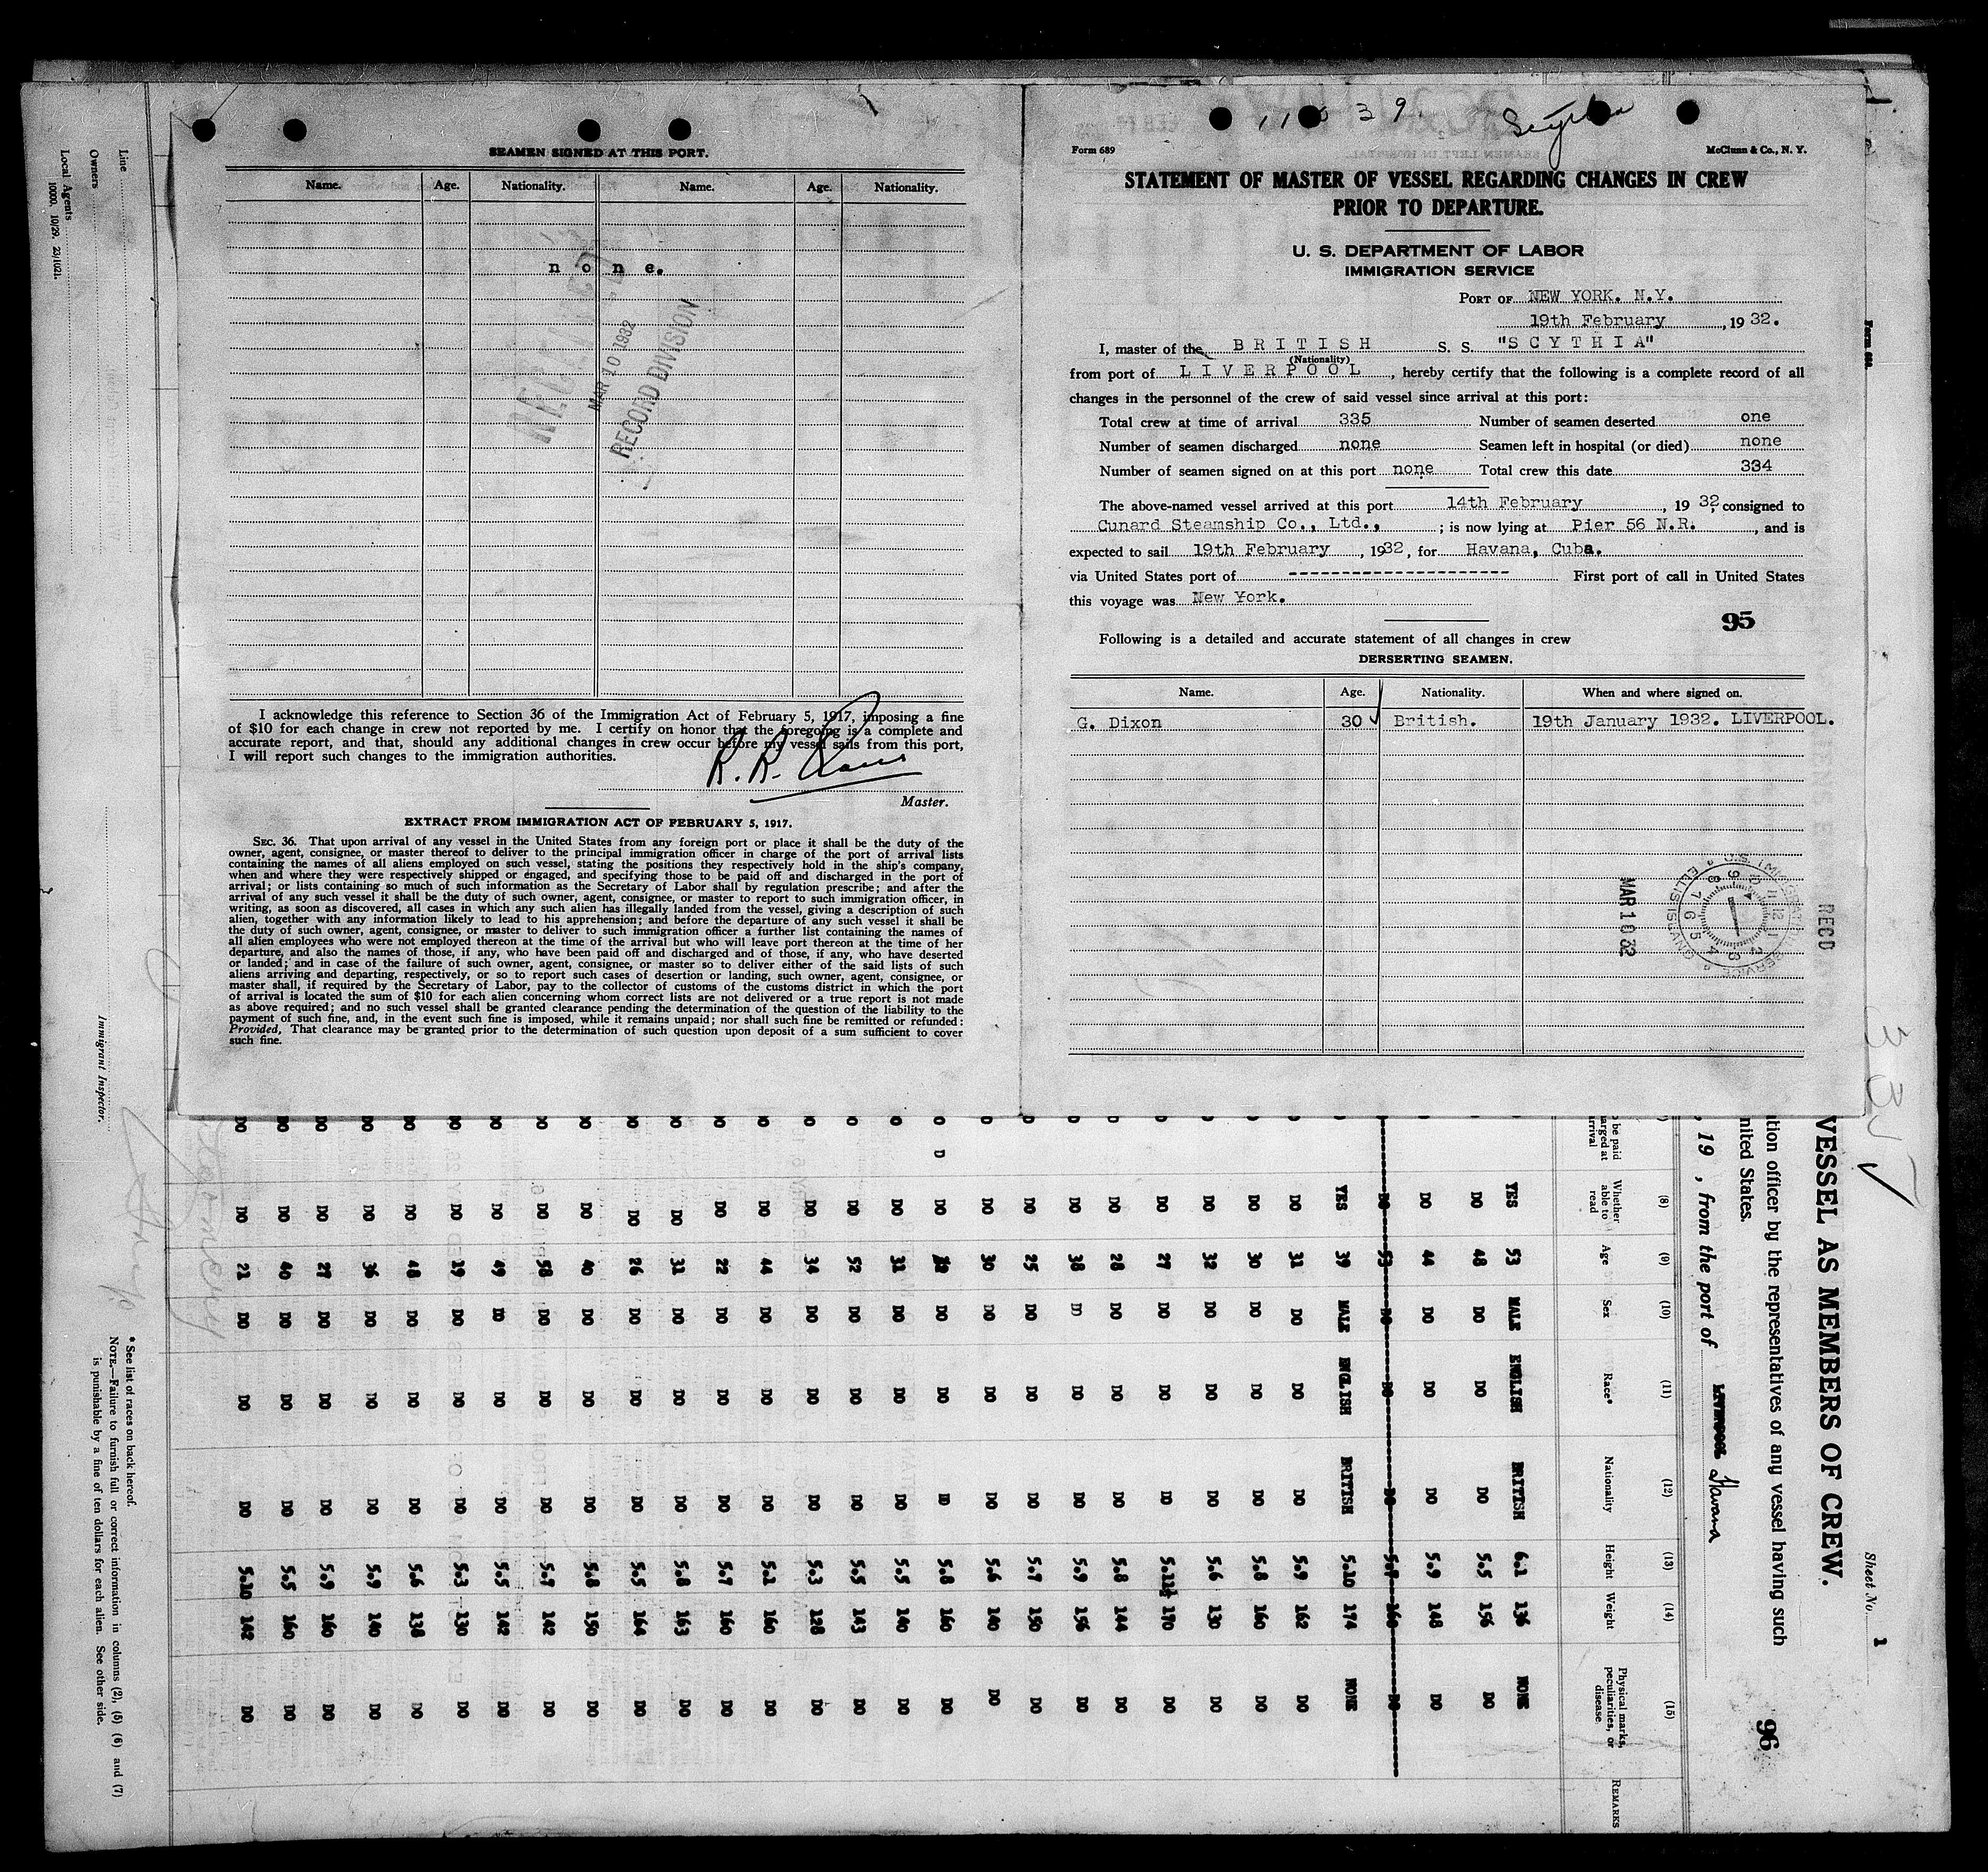 SEAMEN SIGNED AT THIS PORT.
Name. Age. Nationality. Name. Age. Nationality.
none.
MAR 10 1932
RECORD DIVISION
I acknowledge this reference to Section 36 of the Immigration Act of February 5, 1917, imposing a fine
of $10 for each change in crew not reported by me. I certify on honor that the foregoing is a complete and
accurate report, and that, should any additional changes in crew occur before my vessel sails from this port,
I will report such changes to the immigration authorities.
R. R.
Master.
EXTRACT FROM IMMIGRATION ACT OF FEBRUARY 5, 1917.
SEC. 36. That upon arrival of any vessel in the United States from any foreign port or place it shall be the duty of the
owner, agent, consignee, or master thereof to deliver to the principal immigration officer in charge of the port of arrival lists
containing the names of all aliens employed on such vessel, stating the positions they respectively hold in the ship's company,
when and where they were respectively shipped or engaged, and specifying those to be paid off and discharged in the port of
arrival; or lists containing so much of such information as the Secretary of Labor shall by regulation prescribe; and after the
arrival of any such vessel it shall be the duty of such owner, agent, consignee, or master to report to such immigration officer, in
writing, as soon as discovered, all cases in which any such alien has illegally landed from the vessel, giving a description of such
alien, together with any information likely to lead to his apprehension; and before the departure of any such vessel it shall be
the duty of such owner, agent, consignee, or master to deliver to such immigration officer a further list containing the names of
all alien employees who were not employed thereon at the time of the arrival but who will leave port thereon at the time of her
departure, and also the names of those, if any, who have been paid off and discharged and of those, if any, who have deserted
or landed; and in case of the failure of such owner, agent, consignee, or master so to deliver either of the said lists of such
aliens arriving and departing, respectively, or so to report such cases of desertion or landing, such owner, agent, consignee, or
master shall, if required by the Secretary of Labor, pay to the collector of customs of the customs district in which the port
of arrival is located the sum of $10 for each alien concerning whom correct lists are not delivered or a true report is not made
as above required; and no such vessel shall be granted clearance pending the determination of the question of the liability to the
payment of such fine, and, in the event such fine is imposed, while it remains unpaid; nor shall such fine be remitted or refunded:
Provided, That clearance may be granted prior to the determination of such question upon deposit of a sum sufficient to cover
such fine.
Scythia
Form 689 McClunn & Co., N. Y.
STATEMENT OF MASTER OF VESSEL REGARDING CHANGES IN CREW
PRIOR TO DEPARTURE.
U. S. DEPARTMENT OF LABOR
IMMIGRATION SERVICE
PORT OF NEW YORK. N.Y.
19th February, 1932.
I, master of the BRITISH S. S. "SCYTHIA"
(Nationality)
from port of LIVERPOOL, hereby certify that the following is a complete record of all
changes in the personnel of the crew of said vessel since arrival at this port:
Total crew at time of arrival 335 Number of seamen deserted one
Number of seamen discharged none Seamen left in hospital (or died) none
Number of seamen signed on at this port none Total crew this date 334
The above-named vessel arrived at this port 14th February, 1932, consigned to
Cunard Steamship Co., Ltd., ; is now lying at Pier 56 N.R., and is
expected to sail 19th February, 1932, for Havana, Cuba.
via United States port of ---------------------- First port of call in United States
this voyage was New York.
95
Following is a detailed and accurate statement of all changes in crew
DERSERTING SEAMEN.
Name. Age. Nationality. When and where signed on.
G. Dixon 30 British. 19th January 1932. LIVERPOOL.
MAR 10 32
RECD
Line
Owners
Local Agents
10000. 10/29. 23/1021.
Immigrant Inspector.
* See list of races on back hereof.
NOTE.—Failure to furnish full or correct information in columns (2), (5) (6) and (7)
is punishable by a fine of ten dollars for each alien. See other side.
Sheet No. 1
VESSEL AS MEMBERS OF CREW.
tion officer by the representatives of any vessel having such
nited States.
, 19 , from the port of Havana
96
(8) (9) (10) (11) (12) (13) (14) (15)
Whether able to read Age Sex Race* Nationality Height Weight Physical marks, peculiarities, or disease REMARKS
YES 53 MALE ENGLISH BRITISH 6.1 136 NONE
DO 48 DO DO DO 5.5 156 DO
DO 44 DO DO DO 5.9 148 DO
YES 39 MALE ENGLISH BRITISH 5.10 174 NONE
DO 31 DO DO DO 5.9 162 DO
DO 30 DO DO DO 5.8 160 DO
DO 32 DO DO DO 5.6 130 DO
DO 27 DO DO D 5.11½ 170 DO
DO 28 DO DO DO 5.8 144 DO
DO 38 D DO DO 5.9 156 DO
DO 25 DO DO DO 5.7 150 DO
DO 30 DO DO DO 5.6 140 DO
DO DO DO D 5.8 160 DO
DO 31 DO DO DO 5.5 140 DO
DO 52 DO DO DO 5.5 143 DO
DO 34 DO DO DO 5.3 128 DO
DO 44 DO DO DO 5.1 160 DO
DO 22 DO DO DO 5.7 160 DO
DO 31 DO DO DO 5.8 163 DO
DO 26 DO DO DO 5.5 164 DO
DO 40 DO DO DO 5.8 150 DO
DO 58 DO DO DO 5.7 142 DO
DO 49 D DO DO 5.5 142 DO
DO 19 DO DO DO 5.3 130 DO
DO 48 DO DO DO 5.6 138 DO
DO 36 DO DO DO 5.9 140 DO
DO 27 DO DO DO 5.9 160 DO
DO 40 DO DO DO 5.5 160 DO
DO 21 DO DO DO 5.10 142 DO